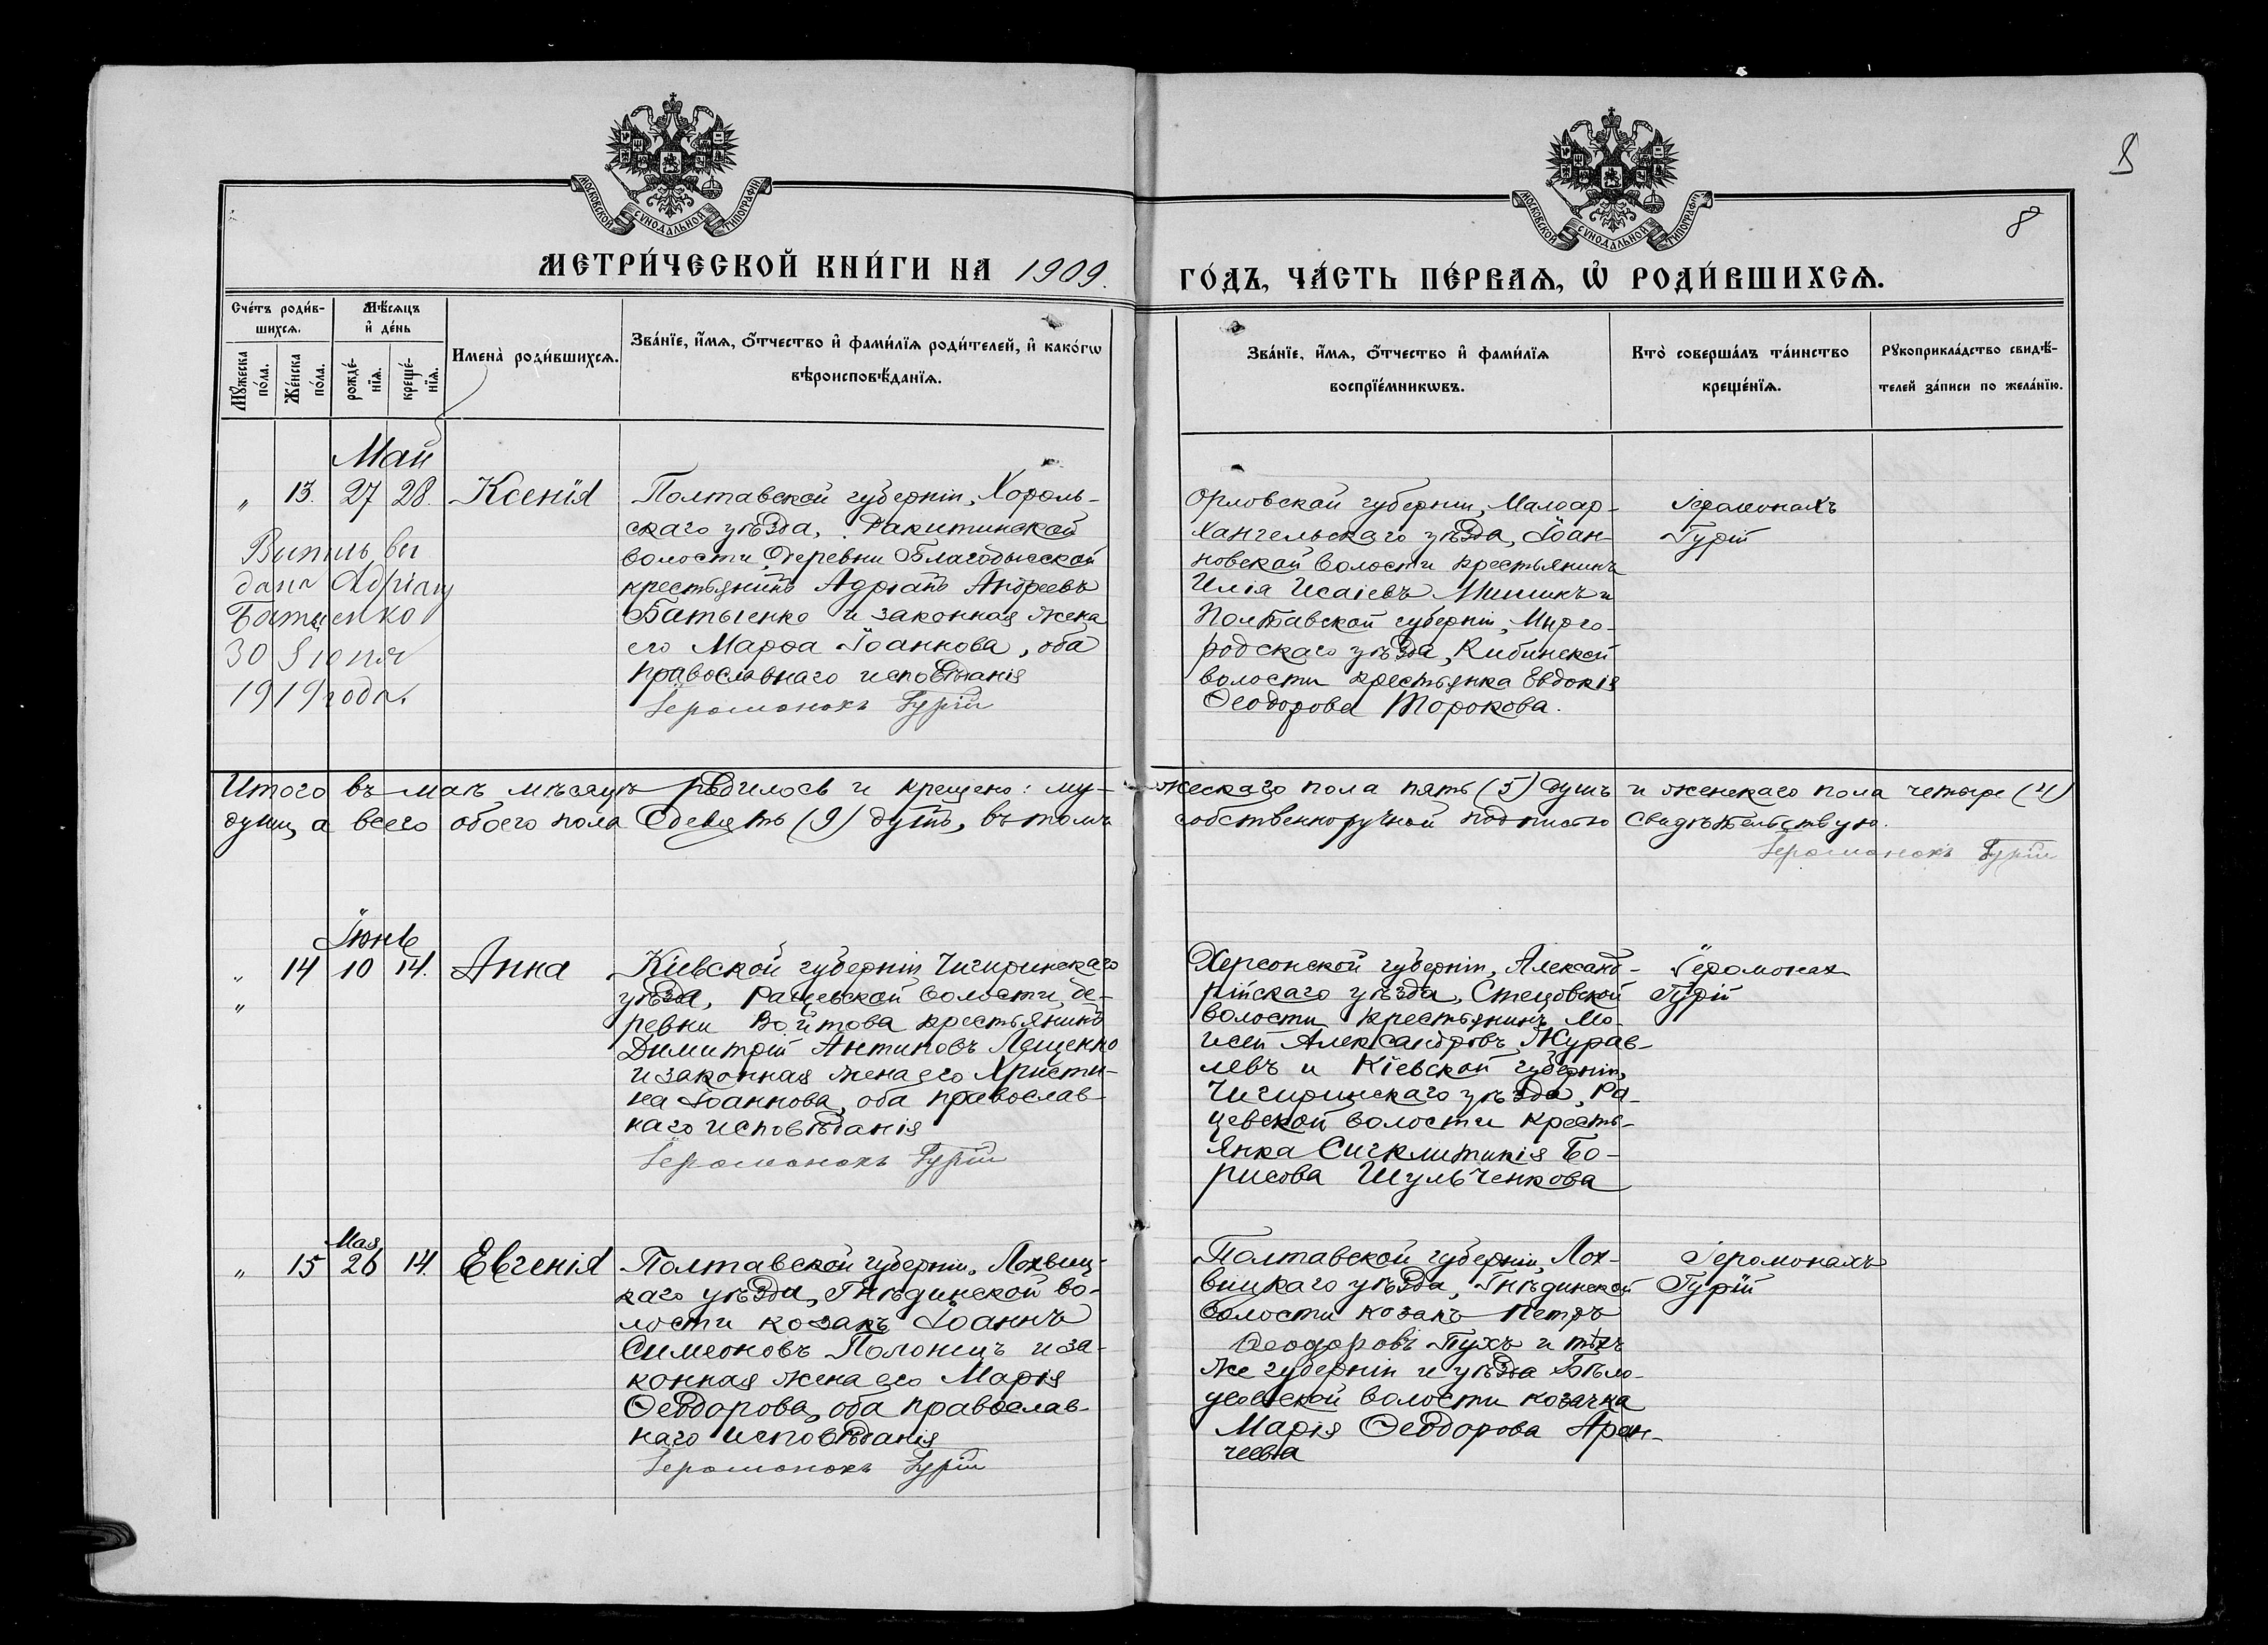 9
8
МОСКОВСКОЙ СѴНОДАЛЬНОЙ ТИПОГРАФІИ
МОСКОВСКОЙ СѴНОДАЛЬНОЙ ТИПОГРАФІИ
МЕТРИ́ЧЕСКОЙ КНИ́ГИ НА 1909.
ГО́ДЪ, ЧА́СТЬ ПЕ́РВАѦ, Ѡ҆ РОДИ́ВШИХСѦ.
Сче́тъ роди́в-
шихсѧ.
Мѣ́сѧцъ
и҆ де́нь
Мꙋ́жеска по́ла.
Же́нска по́ла.
рожде́-
нїѧ.
креще́-
нїѧ.
Имена̀ роди́вшихсѧ.
Зва́нїе, и҆́мѧ, ѻ҆́тчество и҆ фами́лїѧ роди́телей, и҆ како́гѡ
вѣроисповѣ́данїѧ.
Зва́нїе, и҆́мѧ, ѻ҆́тчество и҆ фами́лїѧ
воспрїе́мникѡвъ.
Кто̀ соверша́лъ та́инство
креще́нїѧ.
Рꙋкоприкла́дство свидѣ́-
телей за́писи по жела́нїю.
Май
„ 13. 27 28. Ксенія
Полтавской губерніи, Хороль-
скаго уѣзда, Ракитинской
волости, деревни
крестьянинъ Адріанъ Андреевъ
Батыенко и законная жена
его Марѳа Іоаннова, оба
православнаго исповѣданія
Іеромонахъ Гурій
дана Адріану
Батыенко
30 Іюня
1919 года.
Орловской губерніи, Малоар-
хангельскаго уѣзда, Іоан-
новской волости крестьянинъ
Илія Исаіевъ Мишинъ и
Полтавской губерніи, Мирго-
родскаго уѣзда, Кибинской
волости крестьянка Евдокія
Ѳеодорова Торокова.
Іеромонахъ
Гурій
Итого въ маѣ мѣсяцѣ родилось и крещено: му-
жескаго пола пять (5) душъ и женскаго пола четыре (4)
душ, а всего обоего пола девять (9) душъ, въ томъ
собственноручной подписью свидѣтельствую.
Іеромонахъ Гурій
Іюнь
„ 14 10 14. Анна
„
Кіевской губерніи Чигиринскаго
уѣзда, Рацевской волости, де-
ревни Войтова крестьянинъ
Димитрій Антиповъ Лещенко
и законная жена его Христи-
на Іоаннова, оба православ-
наго исповѣданія
Іеромонахъ Гурій
Херсонской губерніи, Александ-
рійскаго уѣзда, Стецовской
волости крестьянинъ Мо-
исей Александровъ Журав-
левъ и Кіевской губерніи,
Чигиринскаго уѣзда, Ра-
цевской волости кресть-
янка Сигклитикія Бо-
рисова Шульченкова
Іеромонах
Гурій
Мая
„ 15 26 14. Евгенія
Полтавской губерніи, Лохвиц-
каго уѣзда, Гнѣдинской во-
лости козакъ Іоаннъ
Симеоновъ Полонецъ и за-
конная жена его Марія
Ѳеодорова, оба православ-
наго исповѣданія
Іеромонахъ Гурій
Полтавской губерніи, Лох-
вицкаго уѣзда, Гнѣдинской
волости козакъ Петръ
Ѳеодоровъ Пухъ и тѣхъ
же губерніи и уѣзда Бѣло-
усовской волости козачка
Марія Ѳеодорова
Іеромонахъ
Гурій